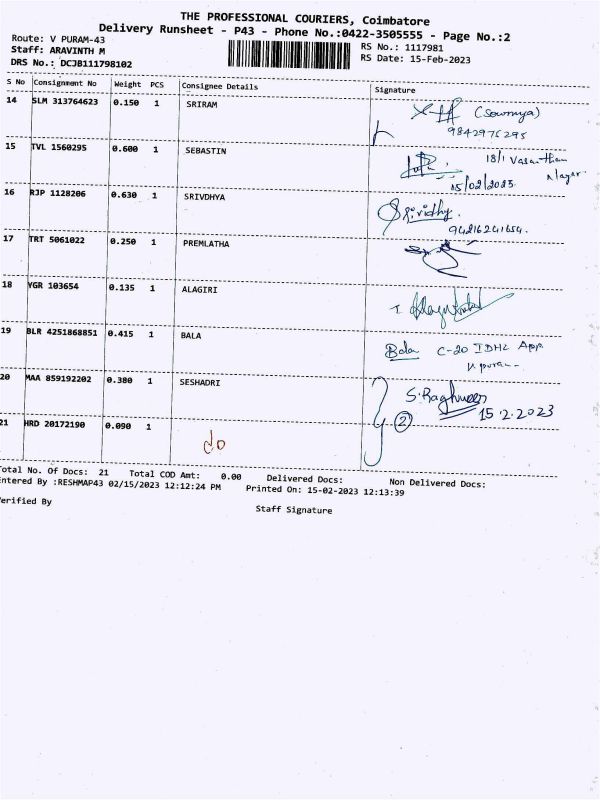 THE PROFESSIONAL COURIERS, Coimbatore
Delivery Runsheet - P43 - Phone No.:0422-3505555 - Page No.:2
Route: V PURAM-43
Staff: ARAVINTH M
DRS No.: DCJB111798102
RS No.: 1117981
RS Date: 15-Feb-2023
S No Consignment No Weight PCS Consignee Details Signature
14 SLM 313764623 0.150 1 SRIRAM (Sowmya)
9842976295
15 TVL 1560295 0.600 1 SEBASTIN 18/1 Vasantham Nagar
15/02/2023.
16 RJP 1128206 0.630 1 SRIVDHYA Srividhy.
94816241654.
17 TRT 5061022 0.250 1 PREMLATHA
18 YGR 103654 0.135 1 ALAGIRI
19 BLR 4251868851 0.415 1 BALA Bala C-20 TDHL App.
V. puram
20 MAA 859192202 0.380 1 SESHADRI S. Raghu
15.2.2023
21 HRD 20172190 0.090 1 do 2
Total No. Of Docs: 21 Total COD Amt: 0.00 Delivered Docs: Non Delivered Docs:
Entered By :RESHMAP43 02/15/2023 12:12:24 PM Printed On: 15-02-2023 12:13:39
Verified By
Staff Signature